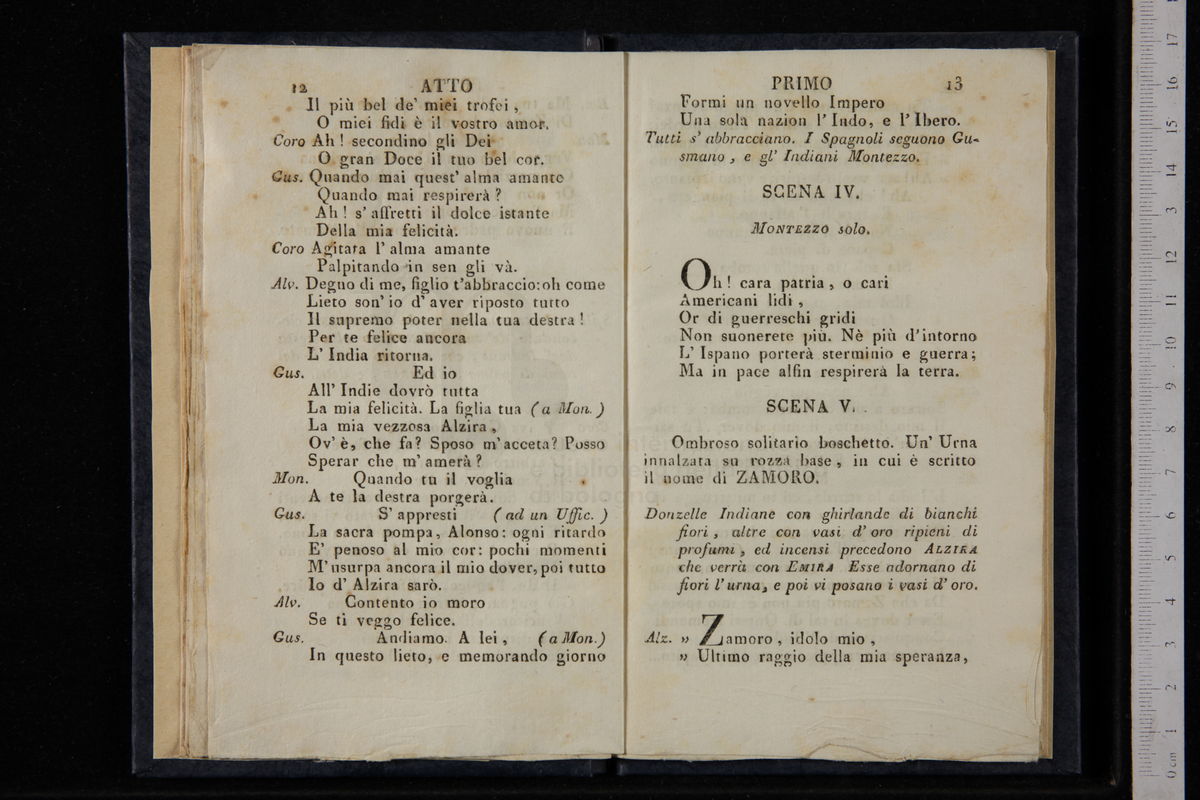 12 ATTO
Il più bel de' miei trofei ,
O miei fidi è il vostro amor.
Coro Ah ! secondino gli Dei
O gran Doce il tuo bel cor.
Gus. Quando mai quest' alma amante
Quando mai respirerà ?
Ah ! s' affretti il dolce istante
Della mia felicità.
Coro Agitara l' alma amante
Palpitando in sen gli và.
Alv. Degno di me, figlio t'abbraccio:oh come
Lieto son' io d' aver riposto tutto
Il supremo poter nella tua destra !
Per te felice ancora
L' India ritorna.
Gus. Ed io
All' Indie dovrò tutta
La mia felicità. La figlia tua ( a Mon. )
La mia vezzosa Alzira ,
Ov' è, che fa? Sposo m' acceta? Posso
Sperar che m' amerà ?
Mon. Quando tu il voglia
A te la destra porgerà.
Gus. S' appresti ( ad un Uffic. )
La sacra pompa, Alonso: ogni ritardo
E' penoso al mio cor: pochi momenti
M' usurpa ancora il mio dover, poi tutto
Io d' Alzira sarò.
Alv. Contento io moro
Se ti veggo felice.
Gus. Andiamo. A lei , ( a Mon. )
In questo lieto, e memorando giorno
PRIMO 13
Formi un novello Impero
Una sola nazion l' Indo, e l' Ibero.
Tutti s' abbracciano. I Spagnoli seguono Gu-
smano , e gl' Indiani Montezzo.
SCENA IV.
MONTEZZO solo.
Oh ! cara patria , o cari
Americani lidi ,
Or di guerreschi gridi
Non suonerete più. Nè più d'intorno
L' Ispano porterà sterminio e guerra;
Ma in pace alfin respirerà la terra.
SCENA V.
Ombroso solitario boschetto. Un' Urna
innalzata su rozza base , in cui è scritto
il nome di ZAMORO.
Donzelle Indiane con ghirlande di bianchi
fiori , altre con vasi d' oro ripieni di
profumi , ed incensi precedono ALZIRA
che verrà con EMIRA Esse adornano di
fiori l' urna, e poi vi posano i vasi d' oro.
Alz. » Zamoro , idolo mio ,
» Ultimo raggio della mia speranza,
0 cm 1 2 3 4 5 6 7 8 9 10 11 12 13 14 15 16 17